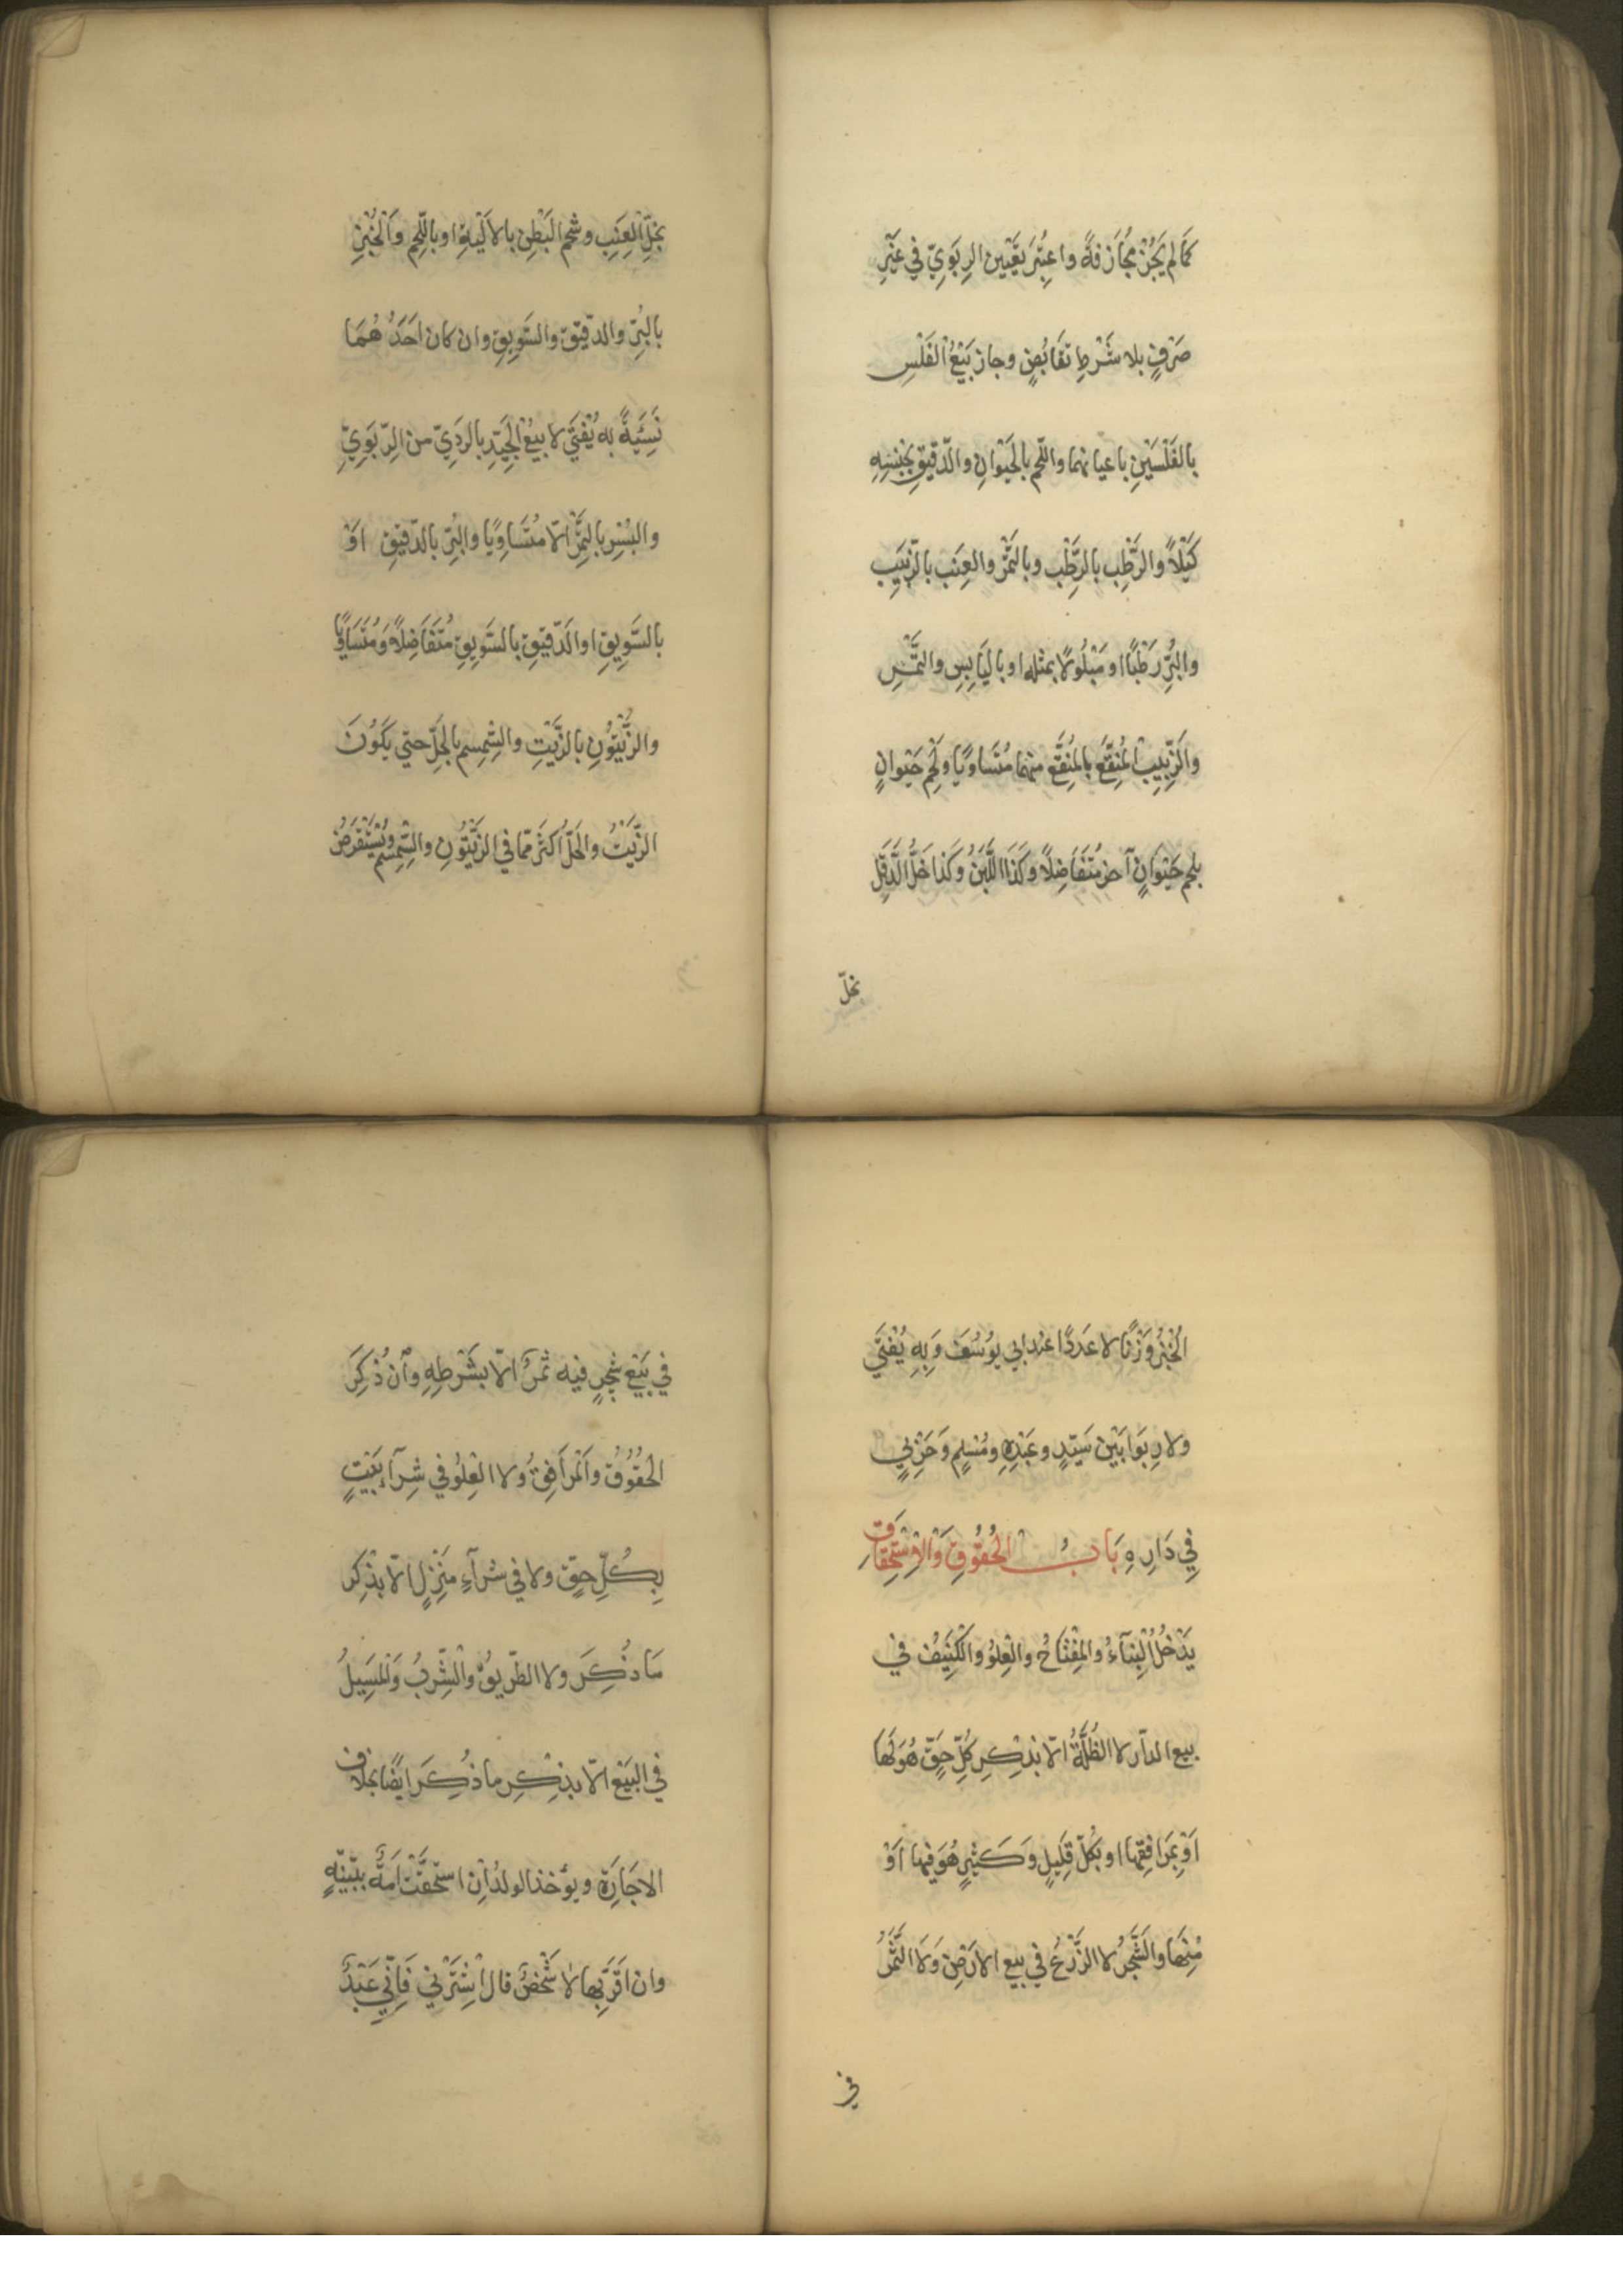 كَمَا لم يَجُزْ مُجَازَفَةً واعتُبِرَ تَعْيِين الرِبَوِيّ في غَيْرِ
صَرْفٍ بلا شَرْطِ تَقَابُضٍ وجاز بَيْعُ الفَلْسِ
بالفَلْسَيْنِ باعيانهما واللّحم بالحَيَوانِ والدّقيقِ بجِنْسِهِ
كَيْلاً والرُّطَبِ بالرُّطَبِ وبالتَمْرِ والعِنَبِ بالزَّبِيبِ
والبُرِّ رَطْبًا او مَبْلُولاً بمثله او باليَابِسِ والتَّمْرِ
والزَّبِيبِ المُنْقَعِ بالمُنْقَعِ منهما مُتَساوِيًا ولَحْمِ حَيَوانٍ
بلحم حَيَوَانٍ آخر مُتَفَاضِلاً وَكَذَا اللَّبَنُ وَكَذا خَلُّ الدَّقَلِ
بخلّ
بخَلِّ العِنَبِ وشحم البَطْنِ بالاَلْيَةِ او باللّحم والخُبْزِ
بالبُرِّ والدّقيق والسَّوِيقِ وان كان احَدُهُمَا
نَسِئَةً به يُفْتَي لا بيعُ الجَيِّدِ بالرَدِيّ من الرِّبَوِيّ
والبُسْرِ بالتمْرِ الّا مُتَسَاوِيًا والبُرِّ بالدّقيقِ اَوْ
بالسَّوِيقِ او الدّقيقِ بالسَّوِيقِ مُتَفَاضِلاً وَمُتَسَاوِيًا
والزَّيْتُونِ بالزَّيْتِ والسِّمسِم بالحَلِّ حتي يَكُونَ
الزَّيْتُ والحَلُّ اكْثَرَ مّما في الزَّيْتُونِ والسِّمسِم ويُسْتَقْرَضُ
الخُبْزُ وَزْنًا لا عَدَدًا عند ابي يوُسُفَ وَبِهِ يُفْتَي
ولا رِبَوا بَيْن سَيّدٍ وعَبْدِهِ ومُسْلِمٍ وَحَرْبِيٍّ
فِي دَارِهِ بَابُ الحُقُوقِ وَالْاِسْتِحْقَاقِ
يَدْخُلُ البِنَآءُ والمِفْتَاحُ والعُلوُ والكَنِيفُ في
بيع الدّار لا الظُلَّةُ الّا بذِكْرِ كُلِّ حَقّ هُوَ لَهَا
اَوْ بمَرَافِقِهَا او بكُلّ قَلِيلٍ وَكَثيرٍ هُوَ فيها اَوْ
مِنْهَا والشَّجَرُ لا الزَّرْعُ في بيع الارَضِ وَلَا الثَّمَرُ
في
في بَيْعِ شجرٍ فيه ثمرٌ الّا بشَرْطِهِ وانْ ذُكِرَ
الحُقُوُقُ والمَرَافِقُ ولا العُلوُ في شِرآءِ بَيْتٍ
بِكُلِّ حقٍّ ولا في شرآءِ مَنْزِلٍ الّا بذِكر
مَا ذُكِرَ ولا الطّريقُ والشِّربُ وَالمَسِيلُ
في البَيْعِ الّا بذِكْرِ ما ذُكِرَ ايضًا بخلافِ
الاجَارَةِ ويؤخذ الولدُ اِن استحقّت اُمّهُ ببَيّنةٍ
وان اقَرَّ بها لا شخْصٌ قال اشْتَرْنِي فَاِنّي عَبْدٌ